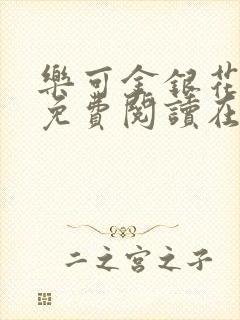 樂可金銀花
免費閱讀在
二之宮之子